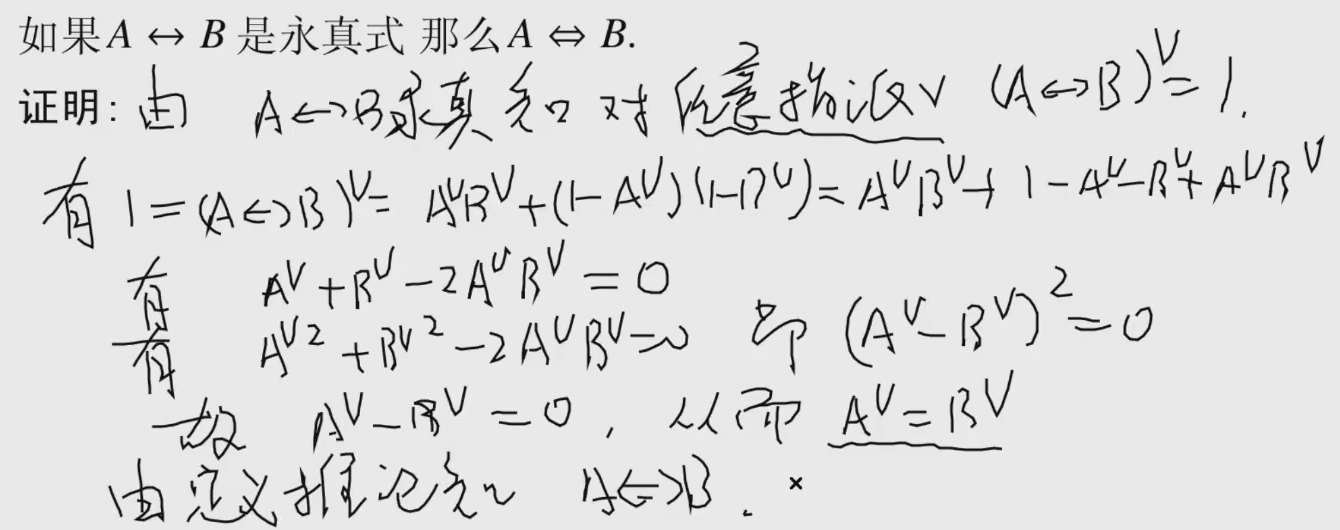 如果A ↔ B 是永真式 那么A ⇔ B.
证明: 由 A↔B永真知 对任意指派V (A↔B)ⱽ = 1.
有 1 = (A↔B)ⱽ = AⱽBⱽ + (1-Aⱽ)(1-Bⱽ) = AⱽBⱽ + 1 - Aⱽ - Bⱽ + AⱽBⱽ
有 Aⱽ + Bⱽ - 2AⱽBⱽ = 0
有 Aⱽ² + Bⱽ² - 2AⱽBⱽ = 0 即 (Aⱽ - Bⱽ)² = 0
故 Aⱽ - Bⱽ = 0, 从而 Aⱽ = Bⱽ
由定义推论知 A⇔B. ×